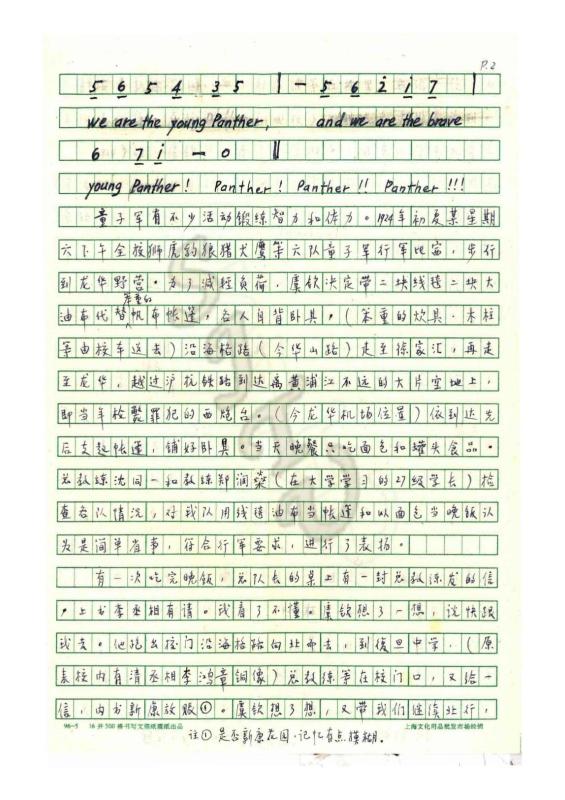 P.2
5 6 5 4 3 5 | — 5 6 2̇ 1̇ 7 |
we are the young Panther, and we are the brave
6 7 1̇ — 0 ‖
young Panther! Panther! Panther!! Panther!!!
童子军有不少活动锻练智力和体力。1924年初夏某星期
六下午全校狮虎豹狼猎犬鹰等六队童子军行军比赛，步行
到龙华野营。为了减轻负荷，虞钦决定带二块线毯二块大
油布代替笨重的帆布帐蓬，各人自背卧具，(笨重的炊具、木柱
等由校车送去)沿海格路(今华山路)走至徐家汇，再走
至龙华，越过沪杭铁路到达离黄浦江不远的大片空地上，
即当年枪毙罪犯的西炮台。(今龙华机场位置)依到达先
后支起帐蓬，铺好卧具。当天晚餐只吃面包和罐头食品。
总教练沈同一和教练郑润燊(在大学学习的27级学长)检
查各队情况，对我队用线毯油布当帐蓬和以面包当晚饭认
为是简单省事，符合行军要求，进行了表扬。
有一次吃完晚饭，总队长的桌上有一封总教练发的信
，上书李丞相有请。我看了不懂。虞钦想了一想，说快跟
我去。他跑出校门沿海格路向北而去，到復旦中学，(原
来校内有清丞相李鸿章铜像)总教练等在校门口，又给一
信，内书新康放败①。虞钦想了想，又带我们继续北行，
96-5 16开300格书写文稿纸 出品
上海文化用品批发市场经销
注①是否新康花园，记忆有点模糊。